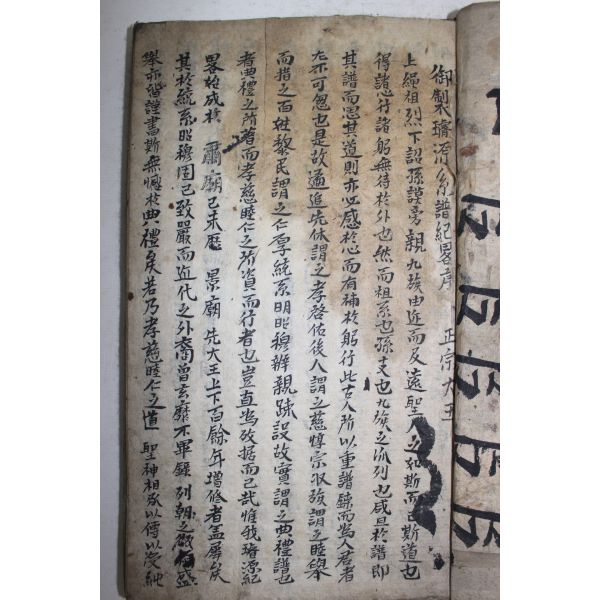 御製璿源系譜紀畧序 正宗大王
上繩祖烈下詔孫謨旁親九族由近而及遠聖人之和斯而已斯道也
得諸心行諸躬無待於外也然而祖系也孫支也九族之派列也咸具於譜即
其譜而思其道則亦必感於心而有補於躬行此古人所以重譜錄而爲人君者
尤不可忽也是故遹追先休謂之孝啓佑後人謂之慈惇宗收族謂之睦擧
而措之百姓黎民謂之仁厚統系明昭穆辨親踈設故實謂之典禮譜也
者典禮之所著而孝慈睦仁之所資而行者也豈直爲攷据而已哉惟我璿源紀
畧始成於 肅廟己未歷 景廟 先大王上下百餘年增修者盖屢矣
其於統系昭穆固已致嚴而近代之外裔曾玄靡不畢錄 列朝之 盛
擧亦皆謹書斯無憾於典禮矣若乃孝慈睦仁之道 聖神相承以傳以受純